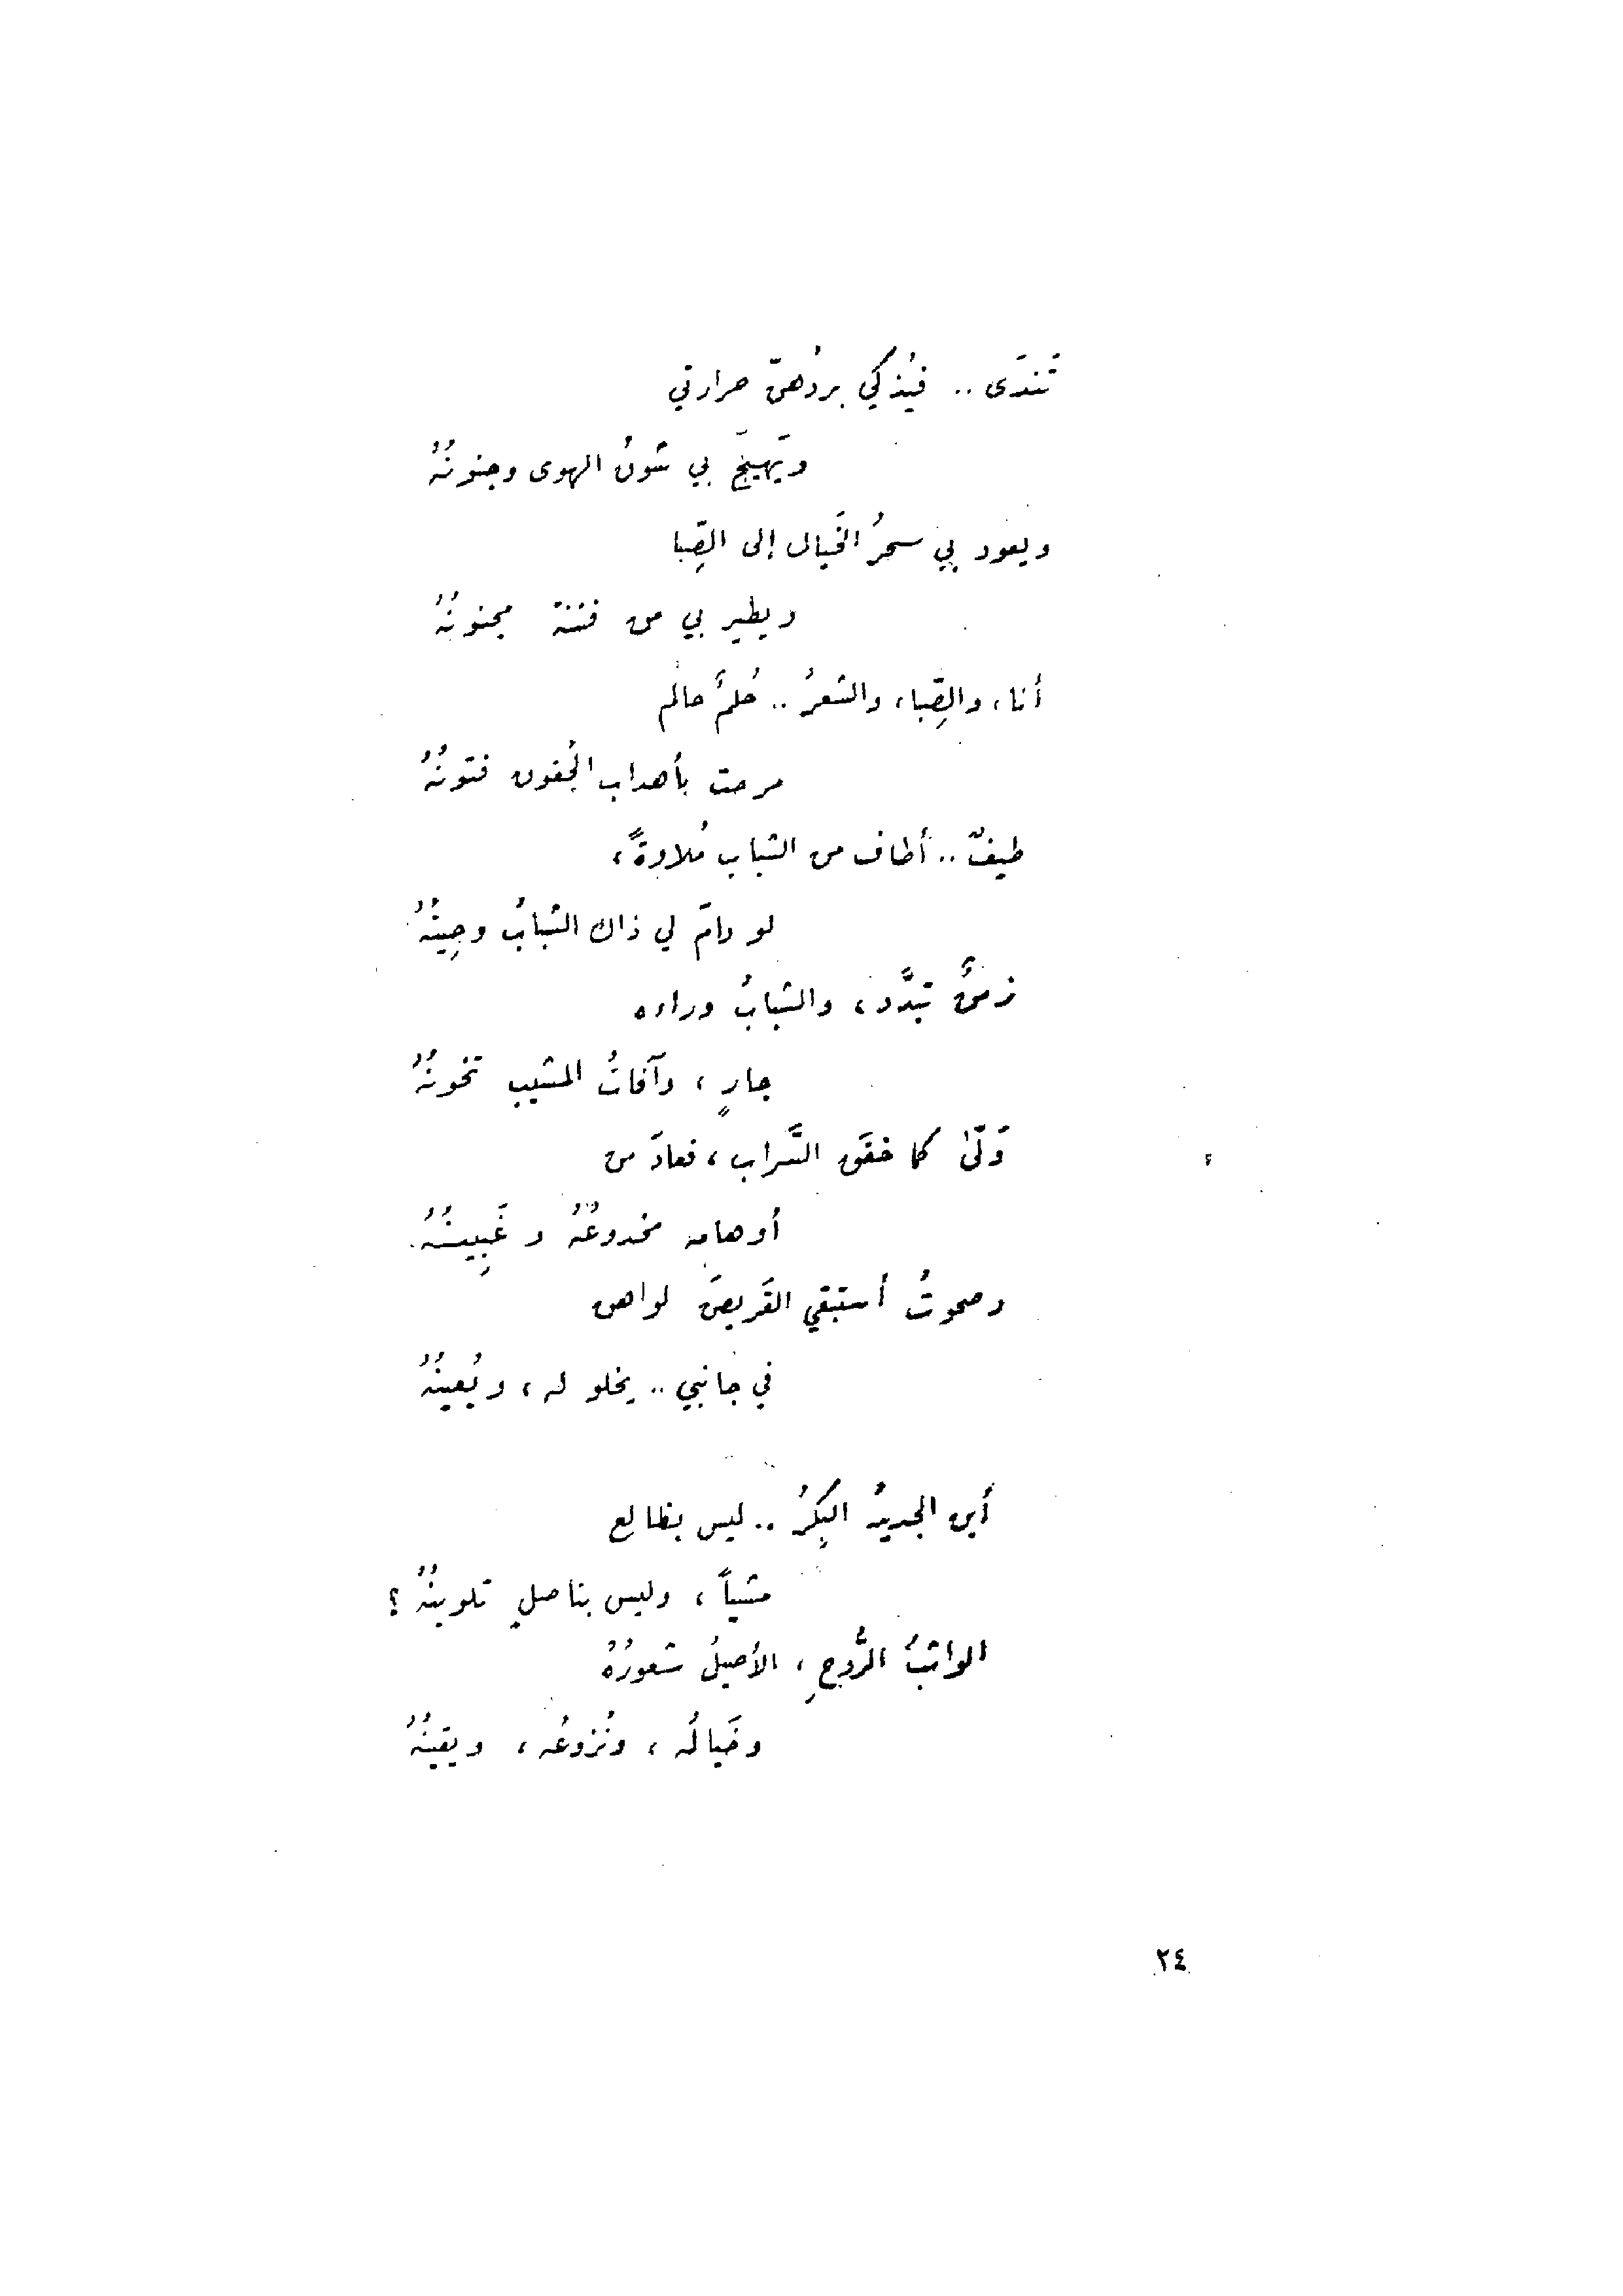 تَندَى .. فيُذكي بردُهنّ حرارتي
ويَهيجُ بي شوقُ الهوى وجنونُهُ
ويعود بي سحرُ الخَيال إلى الصِّبا
ويطير بي من فتنة مجنونُهُ
أنا، والصِّبا، والشعرُ .. حُلمٌ حالم
مرحت بأهداب الجُفون فتونُهُ
طيفٌ .. أطاف من الشباب مُلاوةً،
لو دامَ لي ذاك الشبابُ وحِينُهُ
زمنٌ تبدَّد، والشبابُ وراءه
جارٍ، وآفاتُ المشيب تخونُهُ
وَلّىٰ كما خفَق السَّراب، فعادَ من
أوهامه مخدوعُهُ وغَبِينُهُ
وصحوتُ أستبقي القَريضَ لواهن
في جانبي .. يخلو له، ويُعينُهُ
أين الجديدُ البِكرُ .. ليس بظالع
مشياً، وليس بناصلٍ تلوينُهُ ؟
الواثبُ الرُّوحِ، الأصيلُ شعورُهُ
وخَيالُه، ونُزوعُه، ويقينُهُ
٢٤